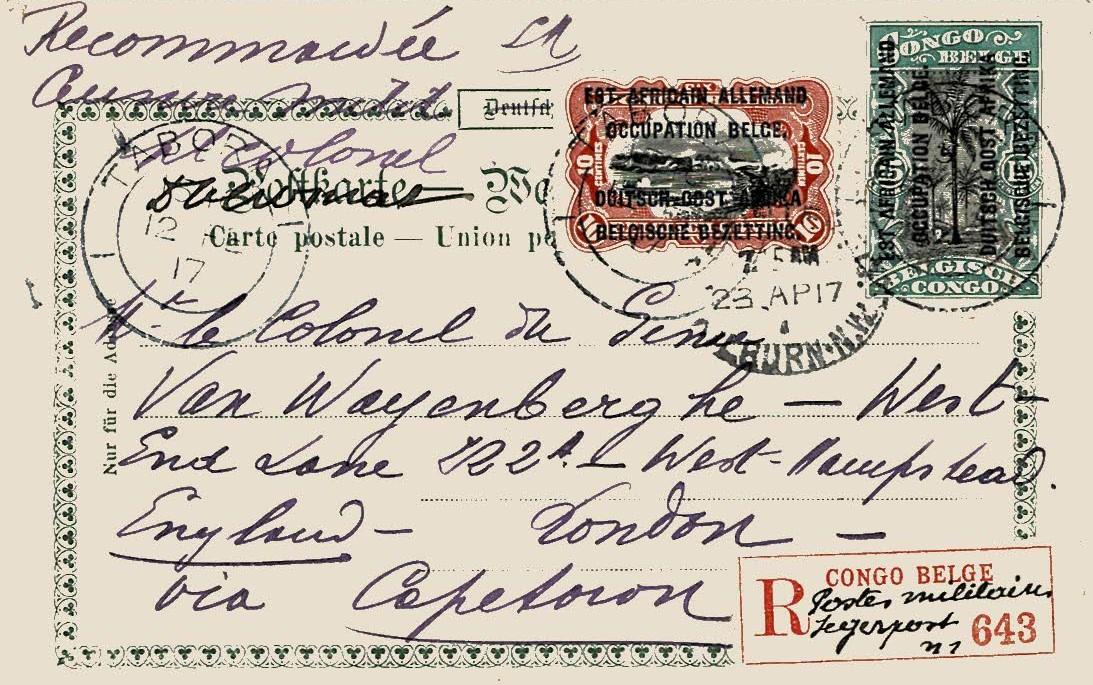 Recommandée
TABORA
12
17
Deutsch
Postkarte — We
Carte postale — Union po
Nur für die Adresse
CENTIMES 10
10 CENTIEMEN
EST AFRICAIN ALLEMAND
OCCUPATION BELGE.
DUITSCH OOST AFRIKA
BELGISCHE BEZETTING.
CONGO
BELGE
EST AFRICAIN ALLEMAND
OCCUPATION BELGE.
DUITSCH OOST AFRIKA
BELGISCHE BEZETTING.
BELGISCH
CONGO
23 AP 17
HURN.N.W.
Mr le Colonel du Genie
Van Wayenberghe — West-
End Lane 122A — West-Hampstead.
England — London —
via Capetown
R CONGO BELGE
Postes militaires
Legerpost
n1 643